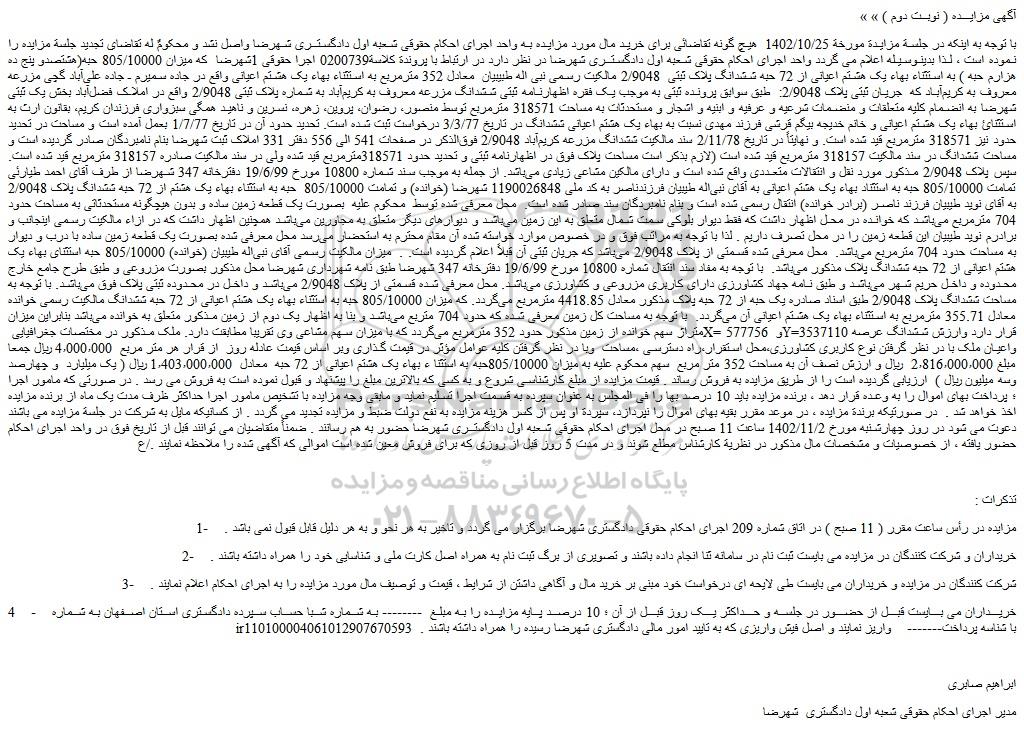 آگهی مزایـــده ( نوبــت دوم ) » »
با توجه به اینکه در جلسـة مزایـدة مورخة 1402/10/25 هیچ گونه تقاضائی برای خریـد مال مورد مزایـده بـه واحد اجرای احکام حقوقی شـعبه اول دادگستــری شـهرضا واصل نشد و محکومٌ له تقاضای تجدید جلسة مزایده را
نمـوده است ، لـذا بدینوسیـله اعلام می گردد واحد اجرای احکام حقوقی شـعبه اول دادگستــری شـهرضا در نظر دارد در ارتباط با پروندة کلاسة0200739 اجرا حقوقی 1شهرضا که میزان 805/10000 حبه(هشتصدو پنج ده
هزارم حبه ) به استثناء بهاء یک هشتم اعیانی از 72 حبه ششدانگ پلاک ثبتی 2/9048 مالکیت رسمی نبی اله طبیبیان معادل 352 مترمربع به استثناء بهاء یک هشتم اعیانی واقع در جاده سمیرم ـ جاده علی‌آباد گچی مزرعه
معروف به کریم‌آبـاد که جریـان ثبتی پلاک 2/9048: طبق سوابق پرونـده ثبتی به موجب یـک فقره اظهارنـامه ثبتی ششدانگ مزرعه معروف به کریم‌آباد به شماره پلاک ثبتی 2/9048 واقع در املاک فضل‌آباد بخش یک ثبتی
شهرضا به انضـمام کلیه متعلقات و منضـمات شرعیه و عرفیه و ابنیه و اشجار و مستحدثات به مساحت 318571 مترمربع توسط منصور، رضوان، پروین، زهره، نسرین و ناهیـد همگی سبزواری فرزندان کریم، بقانون ارث به
استثنائ بهاء یک هشتم اعیانی و خانم خدیجه بیگم قرشی فرزند مهدی نسبت به بهاء یک هشتم اعیانی ششدانگ در تاریخ 3/3/77 درخواست ثبت شده است. تحدید حدود آن در تاریخ 1/7/77 بعمل آمده است و مساحت در تحدید
حدود نیز 318571 مترمربع قید شده است. و نهایتاً در تاریخ 2/11/78 سند مالکیت ششدانگ مزرعه کریم‌آباد 2/9048 فوق‌الذکر در صفحات 541 الی 556 دفتر 331 املاک ثبت شهرضا بنام نامبردگان صادر گردیده است و
مساحت ششدانگ در سند مالکیت 318157 مترمربع قید شده است (لازم بذکر است مساحت پلاک فوق در اظهارنامه ثبتی و تحدید حدود 318571مترمربع قید شده ولی در سند مالکیت صادره 318157 مترمربع قید شده است.
سپس پلاک 2/9048 مـذکور مورد نقل و انتقالات متعـددی واقع شده است و دارای مالکین مشاعی زیادی می‌باشد. از جمله به موجب سـند شـماره 10800 مورخ 19/6/99 دفترخانه 347 شـهرضا از طرف آقای احمد طیارئی
تمامت 805/10000 حبه به استثناد بهاء یک هشتم اعیانی به آقای نبی‌اله طبیبیان فرزندناصر به کد ملی 1190026848 شهرضا (خوانده) و تمامت 805/10000 حبه به استثناء بهاء یک هشتم از 72 حبه ششدانگ پلاک 2/9048
به آقای نوید طبیبیان فرزند ناصـر (برادر خوانده) انتقال رسمی شده است و بنام نامبردگان سـند صادر شده است. محل معرفی شده توسط محکوم علیه بصورت یک قطعه زمین ساده و بدون هیچگونه مستحدثاتی به مساحت حدود
704 مترمربع می‌باشـد که خوانـده در محـل اظهار داشت که فقط دیوار بلوکی سـمت شـمال متعلق به این زمین می‌باشـد و دیوارهای دیگر متعلق به مجاورین می‌باشـد همچنین اظهار داشت که در ازاء مالکیت رسمی اینجانب و
برادرم نوید طبیبیان این قطعه زمین را در محل تصرف داریم . لذا با توجه به مراتب فوق و در خصوص موارد خواسته شده آن مقام محترم به استحضار می‌رسد محل معرفی شده بصورت یک قطعه زمین ساده با درب و دیوار
به مساحت حدود 704 مترمربع می‌باشد. محل معرفی شده قسمتی از پلاک 2/9048 می‌باشد که جریان ثبتی آن قبلاً اعلام گردیده است. . میزان مالکیت رسمی آقای نبی‌اله طبیبیان (خوانده) 805/10000 حبه استثنای بهاء یک
هشتم اعیانی از 72 حبه ششدانگ پلاک مذکور می‌باشد. با توجه به مفاد سند انتقال شماره 10800 مورخ 19/6/99 دفترخانه 347 شهرضا طبق نامه شهرداری شهرضا محل مذکور بصورت مزروعی و طبق طرح جامع خارج
محـدوده و داخـل حریم شـهر می‌باشـد و طبق نـامه جهاد کشاورزی دارای کاربری مزروعی و کشاورزی می‌باشـد. محل معرفی شـده قسـمتی از پلاک 2/9048 می‌باشـد و داخـل در محـدوده ثبتی پلاک فوق می‌باشـد. با توجه به
مساحت ششدانگ پلاک 2/9048 طبق اسناد صادره یک حبه از 72 حبه پلاک مذکور معادل 4418.85 مترمربع می‌گردد. که میزان 805/10000 حبه به استثناء بهاء یک هشتم اعیانی از 72 حبه ششدانگ مالکیت رسمی خوانده
معادل 355.71 مترمربع به استثناء بهاء یک هشتم اعیانی آن می‌گردد. با توجه به مساحت کل زمین معرفی شده که حدود 704 متربع می‌باشد و بنا به اظهار یک دوم از زمین مـذکور متعلق به خوانده می‌باشد بنابراین میزان
قرار دارد وارزش ششدانگ عرصه Y=3537110و X= 577756متراژ سهم خوانده از زمین مذکور حدود 352 مترمربع می‌گردد که با میزان سهم مشاعی وی تقریبا مطابقت دارد. ملک مـذکور در مختصات جغرافیایی
واعیـان ملک با در نظر گرفتن نوع کاربری کشاورزی،محل استقرار،راه دسترسی ،مساحت وبا در نظر گرفتن کلیه عوامل مؤثر در قیمت گـذاری وبر اساس قیمت عادله روز از قرار هر متر مربع 4,000,000 ریال جمعـا
مبلغ 2,816,000,000 ریال و ارزش نصف آن به مساحت 352 متر مربع سهم محکوم علیه به میزان 805/10000حبه به استثنا ء بهاء یک هشتم اعیانی از 72 حبه معادل 1,403,000,000 ریال ( یک میلیارد و چهارصد
وسه میلیون ریال ) ارزیابی گردیده است را از طریق مزایده به فروش رساند . قیمت مزایده از مبلغ کارشناسی شروع و به کسی که بالاترین مبلغ را پیشنهاد و قبول نموده است به فروش می رسد . در صورتی که مامور اجرا
؛ پرداخت بهای اموال را به وعـده قرار دهد ، برنده مزایده باید 10 درصد بها را فی المجلس به عنوان سپرده به قسمت اجرا تسلیم نماید و مابقی وجه مزایده با تشخیص مامور اجرا حداکثر ظرف مدت یک ماه از برنده مزایده
اخذ خواهد شد . در صورتیکه برندة مزایده ، در موعد مقرر بقیه بهای اموال را نپردازد، سپردة او پس از کسر هزینه مزایده به نفع دولت ضبط و مزایده تجدید می گردد . از کسانیکه مایل به شرکت در جلسة مزایده می باشند
دعوت می شود در روز چهارشنبه مورخ 1402/11/2 ساعت 11 صبح در محل اجرای احکام حقوقی شعبه اول دادگستـری شهرضا حضور به هم رسانند . ضمناً متقاضیان می توانند قبل از تاریخ فوق در واحد اجرای احکام
حضور یافته ، از خصوصیات و مشخصات مال مذکور در نظریة کارشناس مطلع شوند و در مدت 5 روز قبل از روزی که برای فروش معین شده است اموالی که آگهی شده را ملاحظه نمایند ./ع
پایگاه اطلاع رسانی مناقصه و مزایده
۰۲۱-۸۸۳۴۹۶۷۰-۵
تذکرات :
مزایده در رأس ساعت مقرر ( 11 صبح ) در اتاق شماره 209 اجرای احکام حقوقی دادگستری شهرضا برگزار می گردد و تاخیر به هر نحو و به هر دلیل قابل قبول نمی باشد . -1
خریداران و شرکت کنندگان در مزایده می بایست ثبت نام در سامانه ثنا انجام داده باشند و تصویری از برگ ثبت نام به همراه اصل کارت ملی و شناسایی خود را همراه داشته باشند . -2
شرکت کنندگان در مزایده و خریداران می بایست طی لایحه ای درخواست خود مبنی بر خرید مال و آگاهی داشتن از شرایط ، قیمت و توصیف مال مورد مزایده را به اجرای احکام اعلام نمایند . -3
خریـــداران می بـــایست قبـــل از حضـــور در جلســـه و حـــداکثر یـــک روز قبـــل از آن ؛ 10 درصـــد پـــایه مزایـــده را بـه مبلـغ -------- بـه شـماره شـبا حسـاب سـپرده دادگسـتری اسـتان اصـفهان بـه شـماره - 4
با شناسه پرداخت------- واریز نمایند و اصل فیش واریزی که به تایید امور مالی دادگستری شهرضا رسیده را همراه داشته باشند . ir110100004061012907670593
ابراهیم صابری
مدیر اجرای احکام حقوقی شعبه اول دادگستری شهرضا